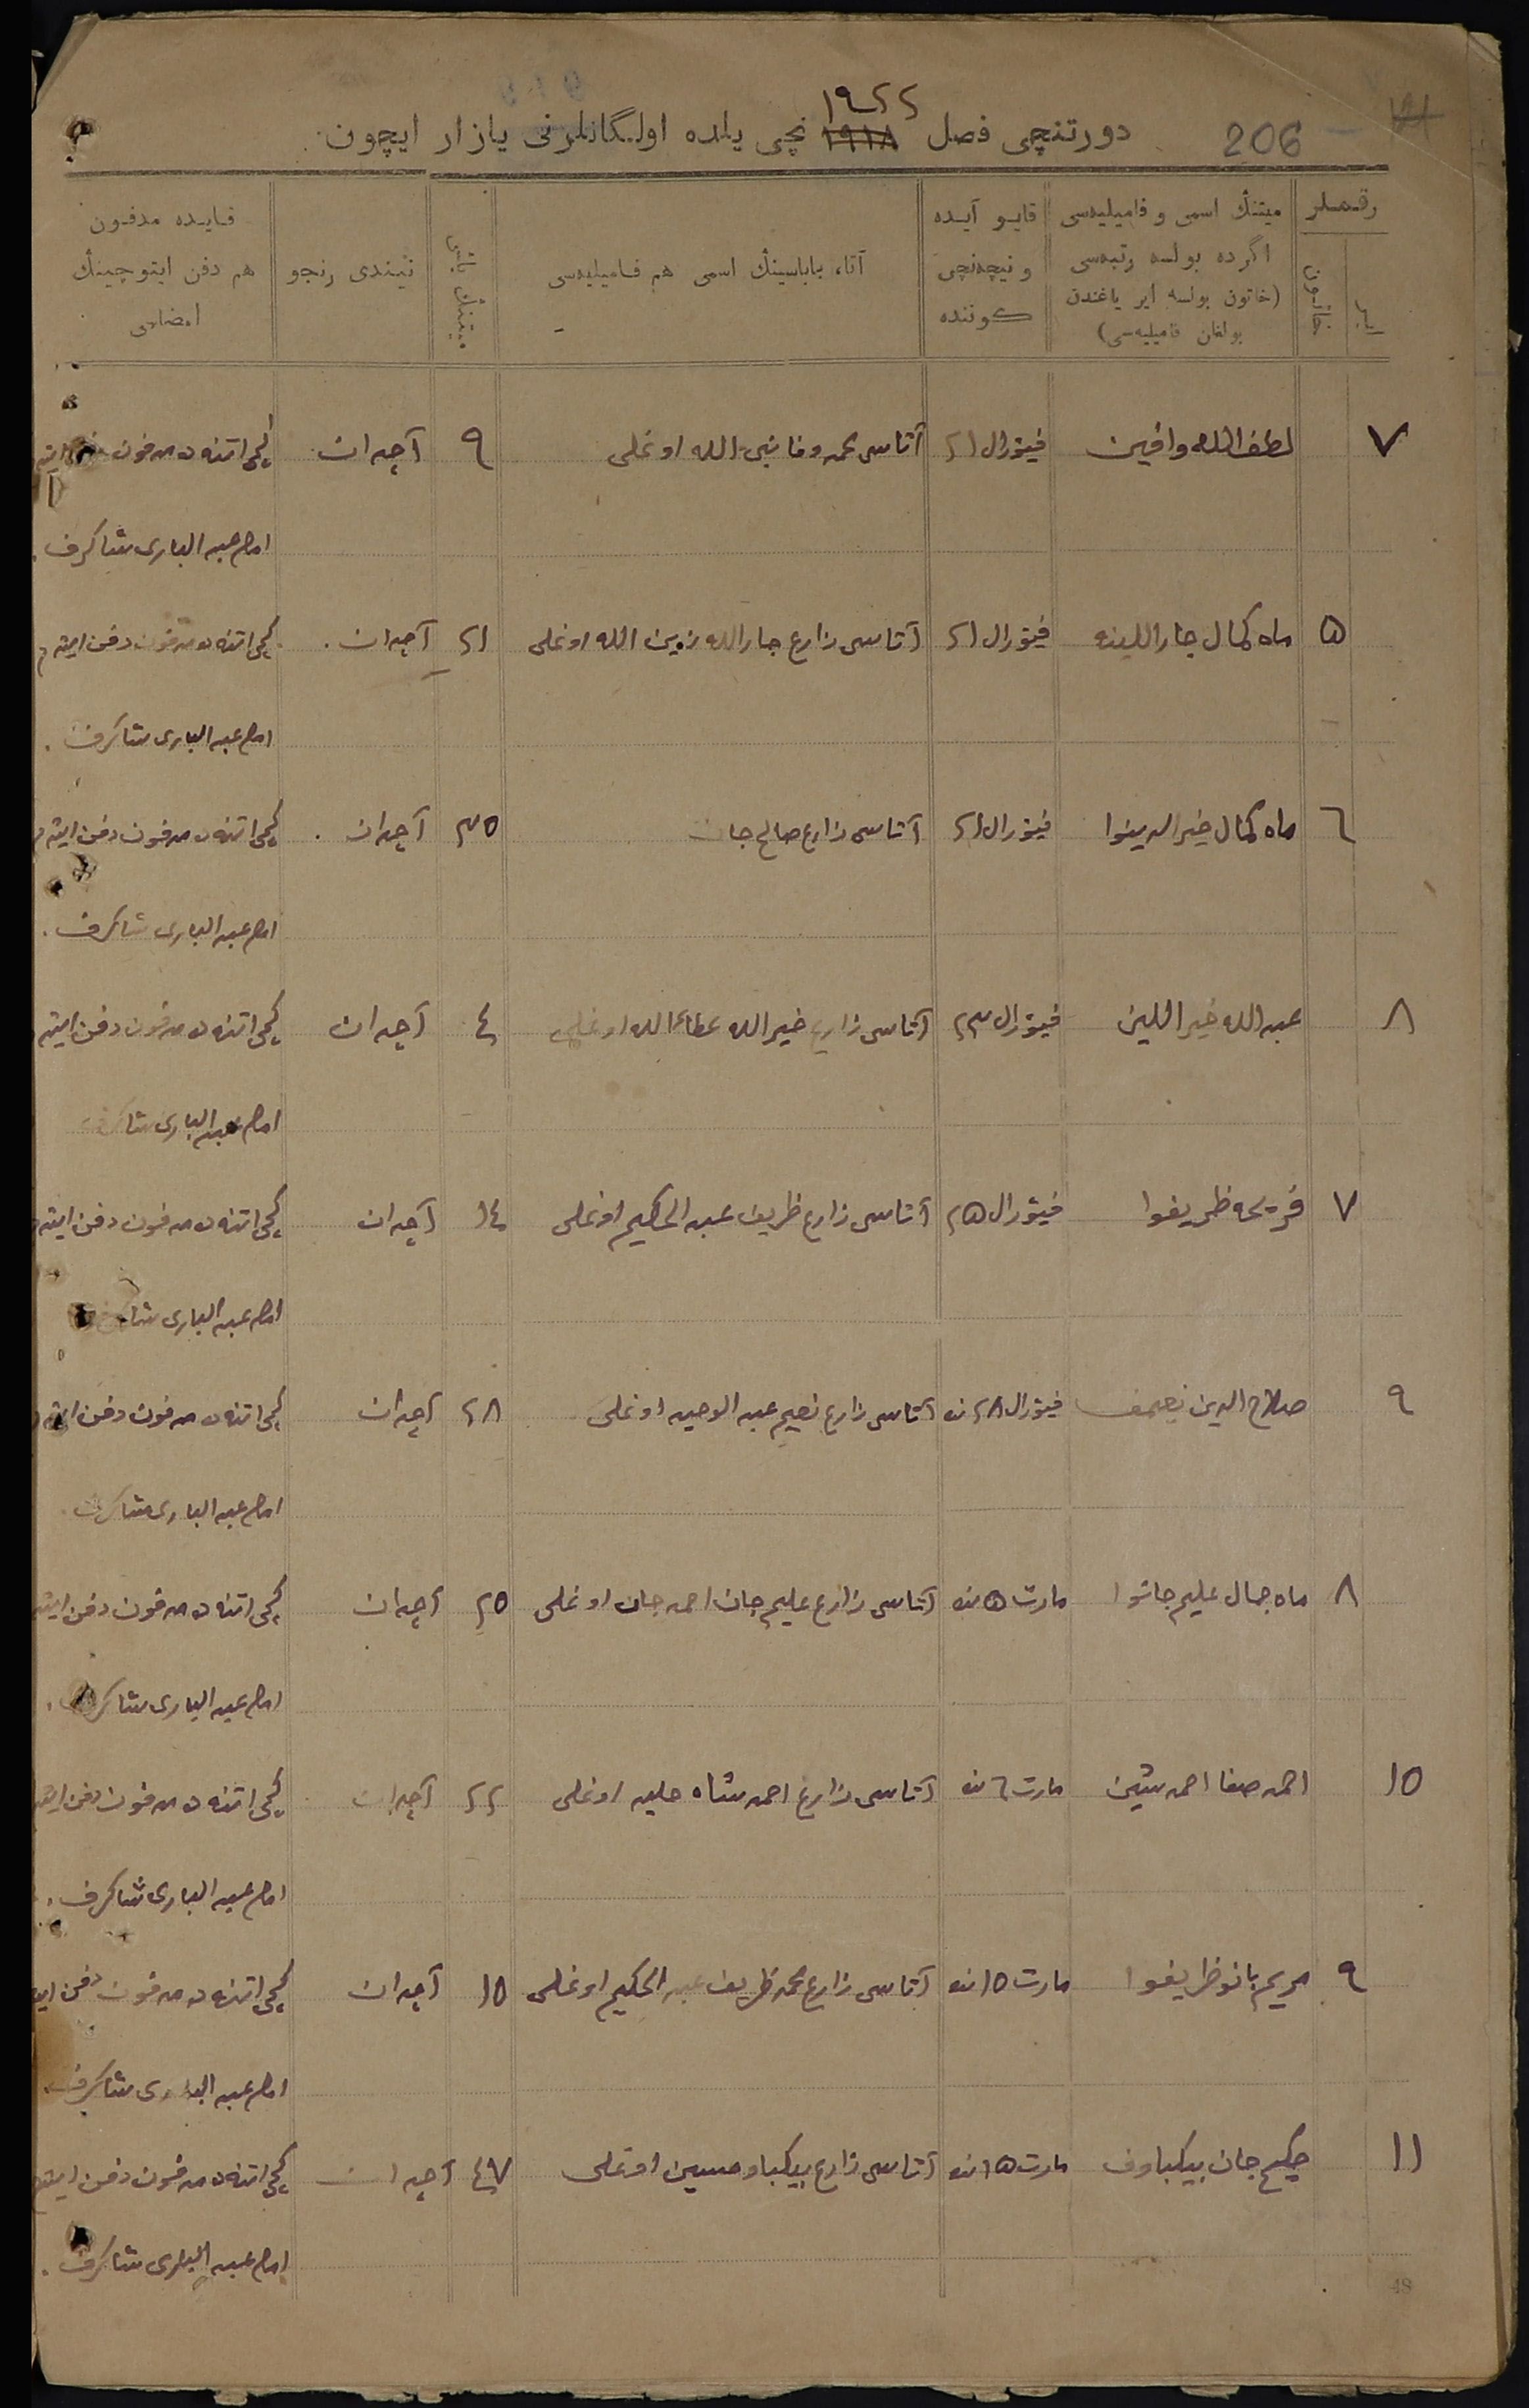 206
دورتنچی فصل ١٩٢٢ نچی یلده اولـگانلرنی یازار ایچون.
رقـملر
ایر
خاتون
میتنڭ اسمی و فامیلیه‌سی اگرده بولسه رتبه‌سی (خاتون بولسه ایر یاغندن بولغان فامیلیه‌سی)
قایـو آیـده و نیچه‌نچی کـوننده
آتا، باباسینڭ اسمی هم فـامیلیه‌سی
میتنڭ یاشی
نیندی رنجو
قـایـده مدفـون هم دفن ایتوچینڭ امضاسی
٧ لطف الله وافین فیئورال ٢١ آتاسی محمد وفا نبی الله اوغلی ٩ آچدان کچی اتنه ده مدفون
امام عبد الباری شاکرف.
٥ ماه کمال جاراللینه فیئورال ٢١ آتاسی زارع جارالله زین الله اوغلی ٢١ آچدان. کچی اتنه ده مدفون دفن ایتدم
امام عبد الباری شاکرف.
٦ ماه کمال خیرالدینوا فیئورال ٢١ آتاسی زارع صالح جان ٣٥ آچدان. کچی اتنه ده مدفون دفن ایتدم
امام عبد الباری شاکرف.
٨ عبد الله خیراللین فیئورال ٢٣ آتاسی زارع خیرالله عطاءالله اوغلی ٤ آچدان کچی اتنه ده مدفون دفن ایتدم
امام عبد الباری شاکرف
٧ ظریفوا فیئورال ٢٥ آتاسی زارع ظریف عبد الحکیم اوغلی ١٤ آچدان کچی اتنه ده مدفون دفن ایتدم
امام عبد الباری شاکرف
٩ صلاح الدین نعیمف فیئورال ٢٨ نده آتاسی زارع نعیم عبد الوحید اوغلی ٢٨ آچدان کچی اتنه ده مدفون دفن ایتدم
امام عبد الباری شاکرف.
٨ ماه جمال علیم جانوا مارت ٥ نده آتاسی زارع علیم جان احمد جان اوغلی ٢٥ آچدان کچی اتنه ده مدفون دفن ایتدم
امام عبد الباری شاکرف.
١٥ احمد صفا احمدشین مارت ٦ نده آتاسی زارع احمدشاه اوغلی ٢٢ آچدان کچی اتنه ده مدفون دفن ایتدم
امام عبد الباری شاکرف.
٩ مریم بانو ظریفوا مارت ١٥ نده آتاسی زارع محمد ظریف عبد الحکیم اوغلی ١٥ آچدان کچی اتنه ده مدفون دفن
امام عبد الباری شاکرف.
١١ حکیم جان بیکباوف مارت ١٥ نده آتاسی زارع بیکباو حسین اوغلی ٤٧ آچدان کچی اتنه ده مدفون دفن ایتدم
امام عبد الباری شاکرف.
48